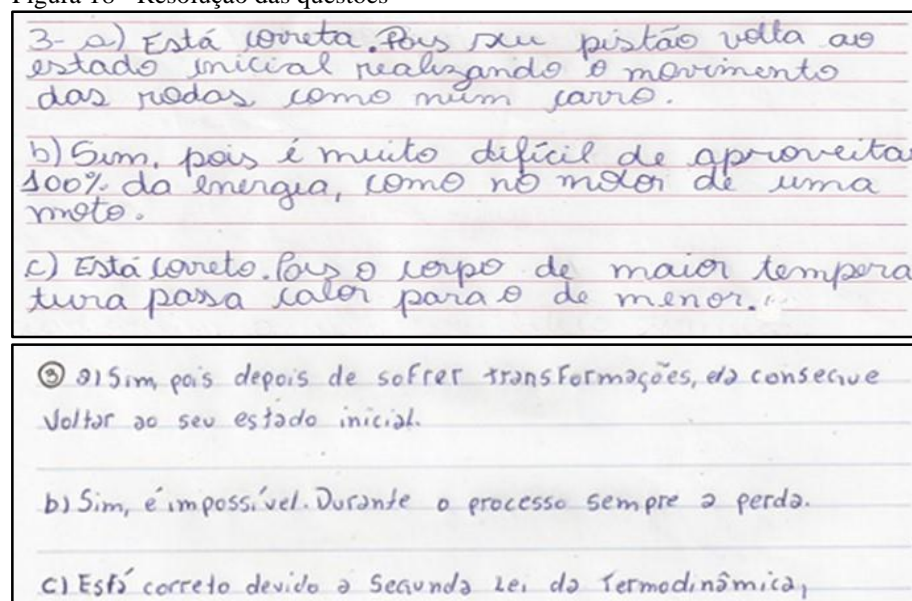 Figura 18 - Resolução das questões
3- a) Está correta. Pois seu pistão volta ao
estado inicial realizando o movimento
das rodas como num carro.
b) Sim, pois é muito difícil de aproveitar
100% da energia, como no motor de uma
moto.
c) Está correto. Pois o corpo de maior tempera
tura passa calor para o de menor.
③ a) Sim, pois depois de sofrer transformações, ela consegue
voltar ao seu estado inicial.
b) Sim, é impossível. Durante o processo sempre a perda.
c) Está correto devido a Segunda Lei da Termodinâmica,